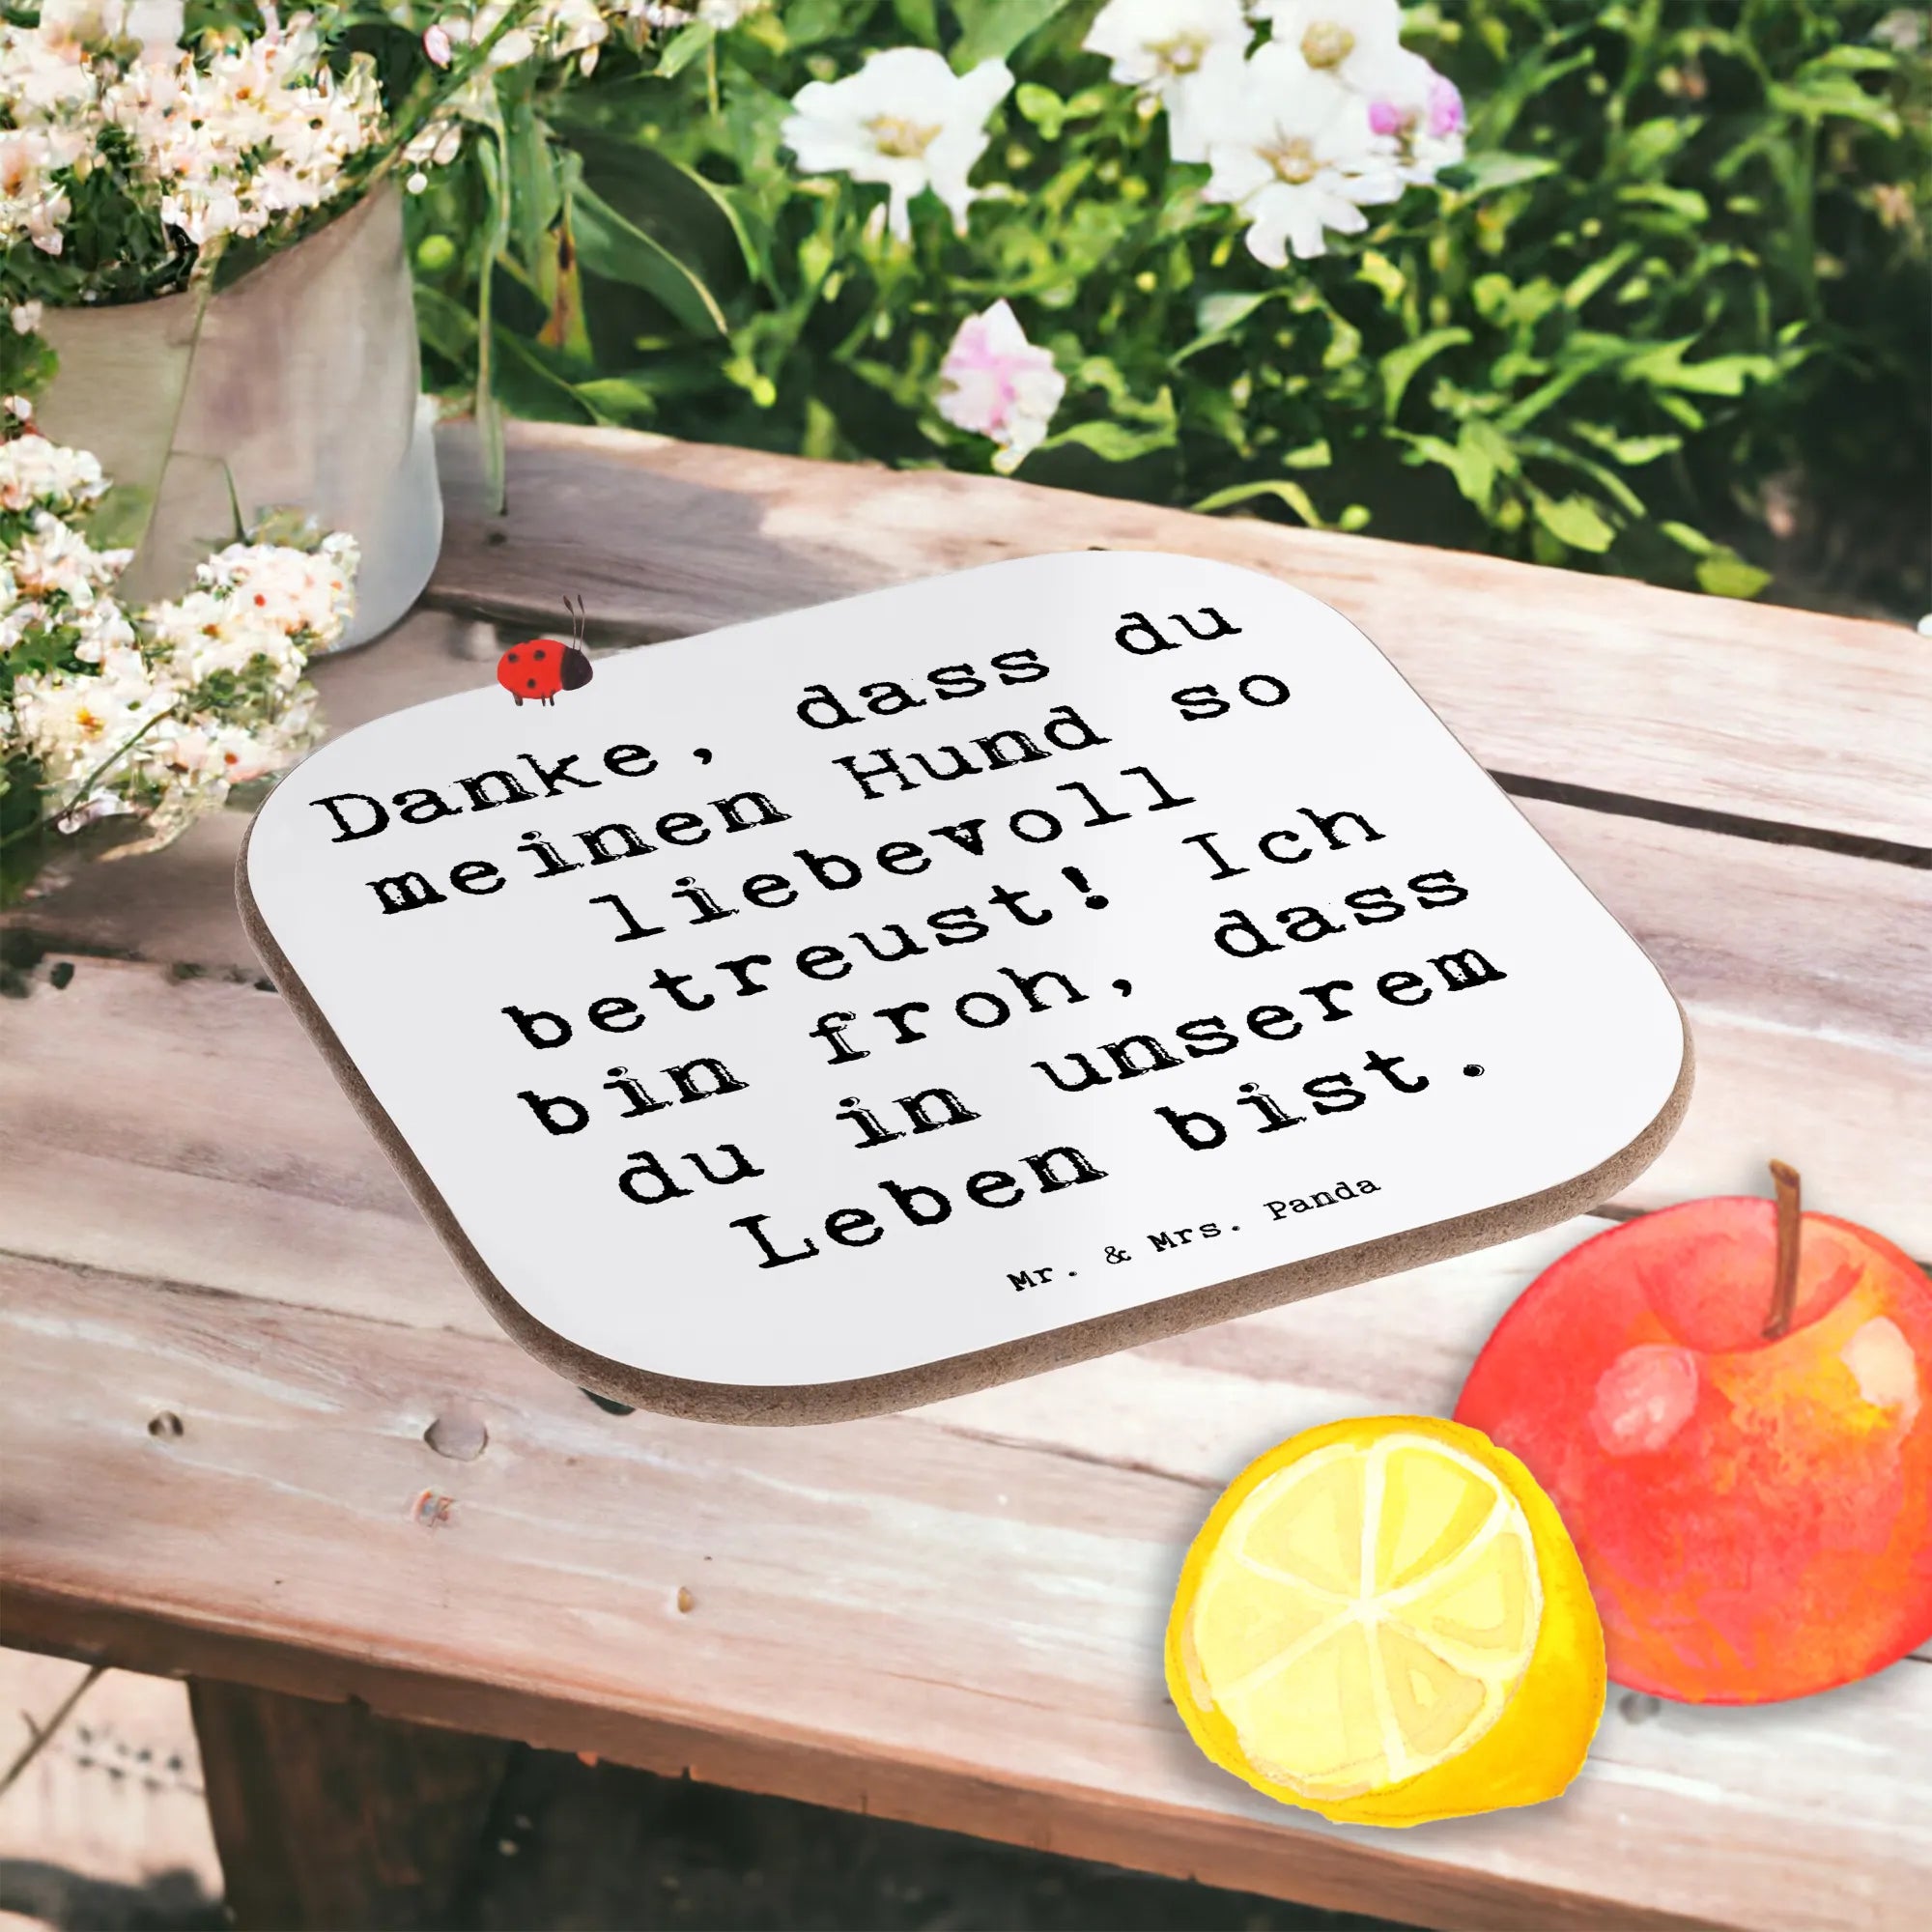 Danke, dass du
meinen Hund so
liebevoll
betreust! Ich
bin froh, dass
du in unserem
Leben bist.
Mr. & Mrs. Panda